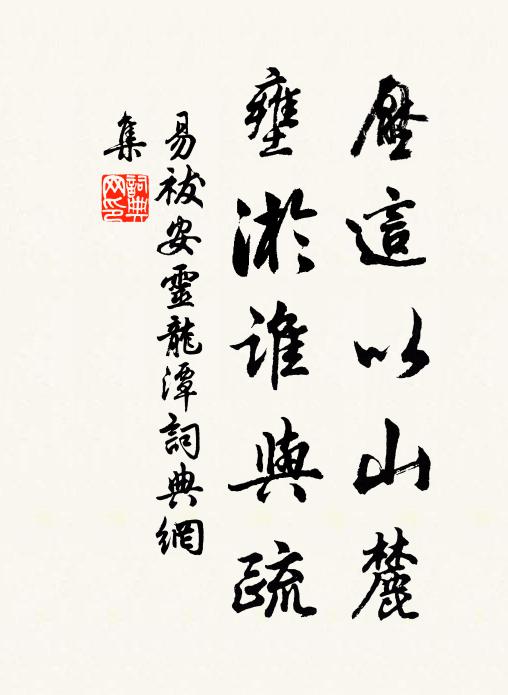 壓這以山麓
壅淤誰與疏
易祓安靈龍潭詞典網
集
詞典
网印